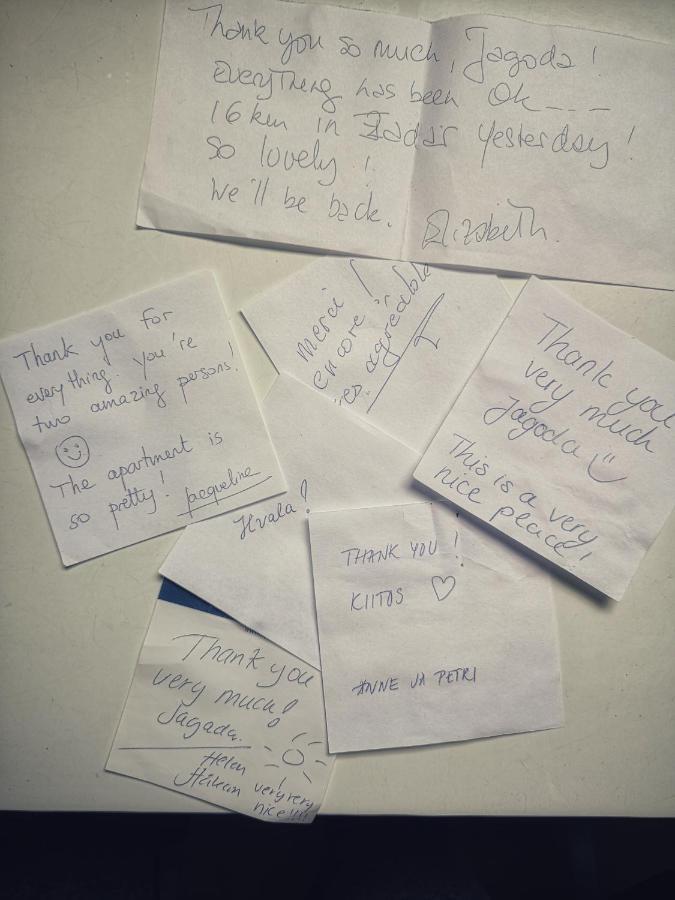 Thank you so much, Jagoda!
everything has been Ok---
16 km in Zadar yesterday!
So lovely!
We'll be back.
Elizabeth.
merci!
encore
agréable
Thank you for
everything. you're
two amazing persons!
The apartment is
so pretty!
Jacqueline
Thank you
very much
Jagoda
This is a very
nice peace!
Hvala!
THANK YOU!
KIITOS
ANNE JA PETRI
Thank you
very much!
Jagada.
Helen
Håkan
very very
nice!!!!